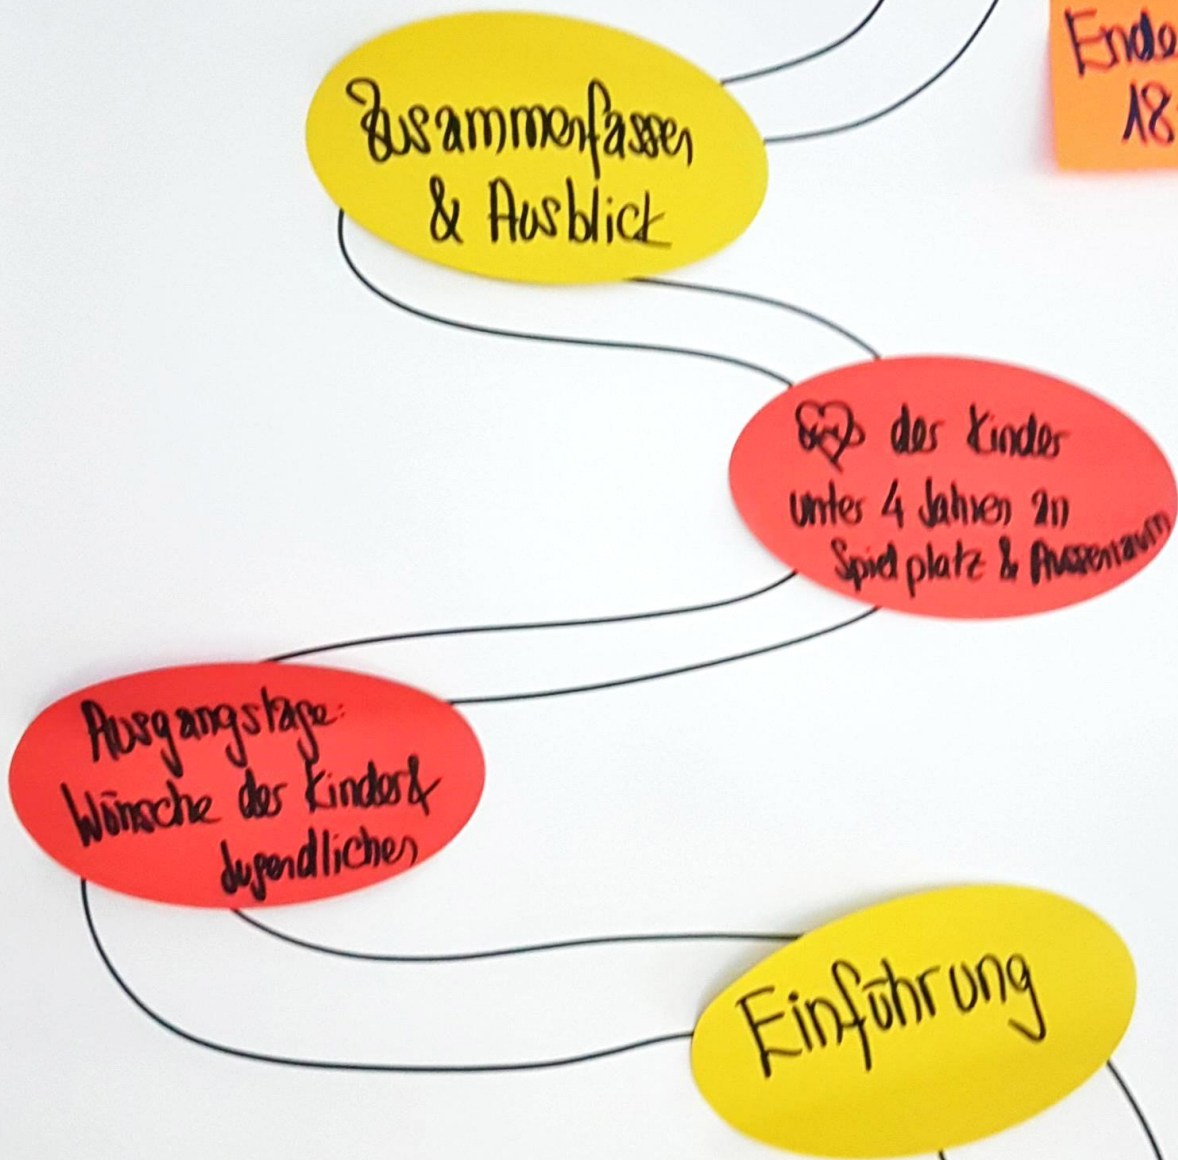 Zusammenfassen
& Ausblick
Ende
18
der Kinder
unter 4 Jahren an
Spielplatz & Aussenraum
Ausgangslage:
Wünsche der Kinder &
Jugendlichen
Einführung